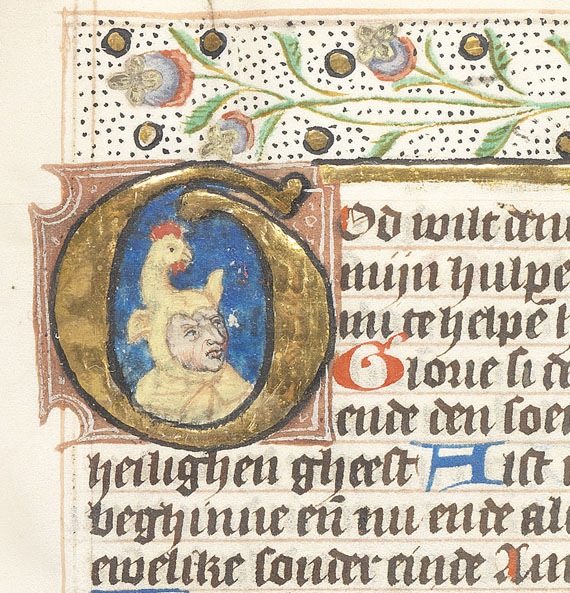 God wilt den
mijn hulpe
mi te helpē
Glorie si d
ende den soe
heilighen gheest Alst
beghinne eñ nu ende al
ewelike sonder einde Am